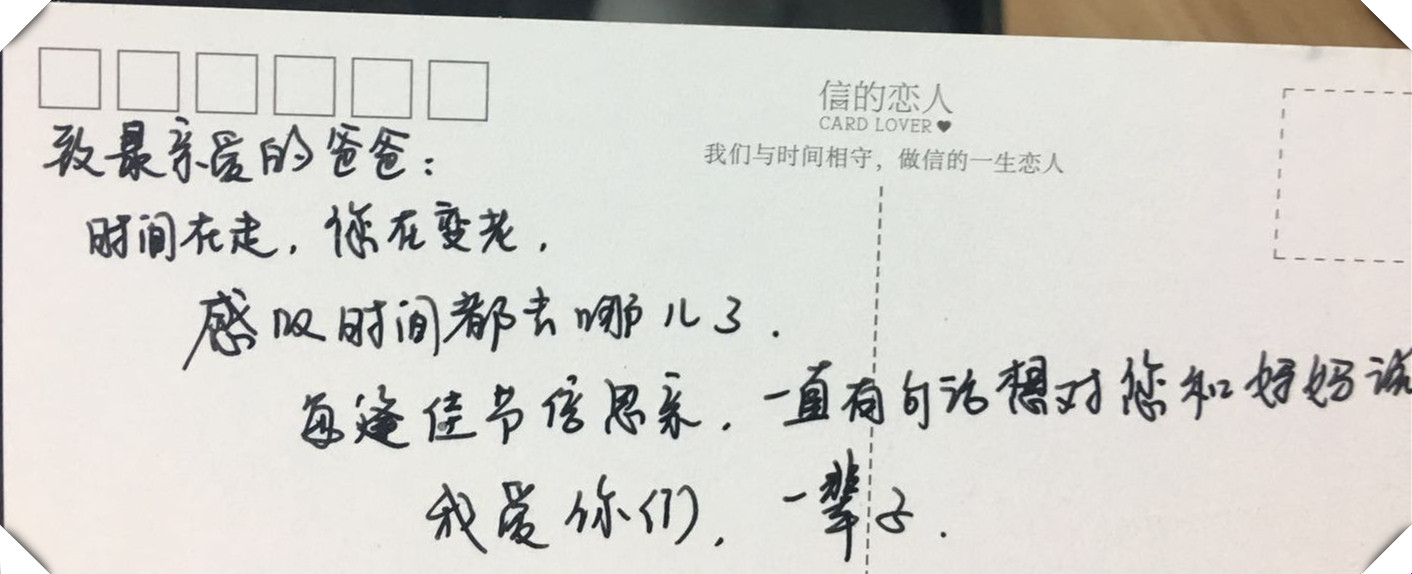 信的恋人
CARD LOVER
我们与时间相守，做信的一生恋人
致最亲爱的爸爸：
时间在走，你在变老，
感叹时间都去哪儿了．
每逢佳节倍思亲，一直有句话想对您和妈妈说
我爱你们，一辈子．